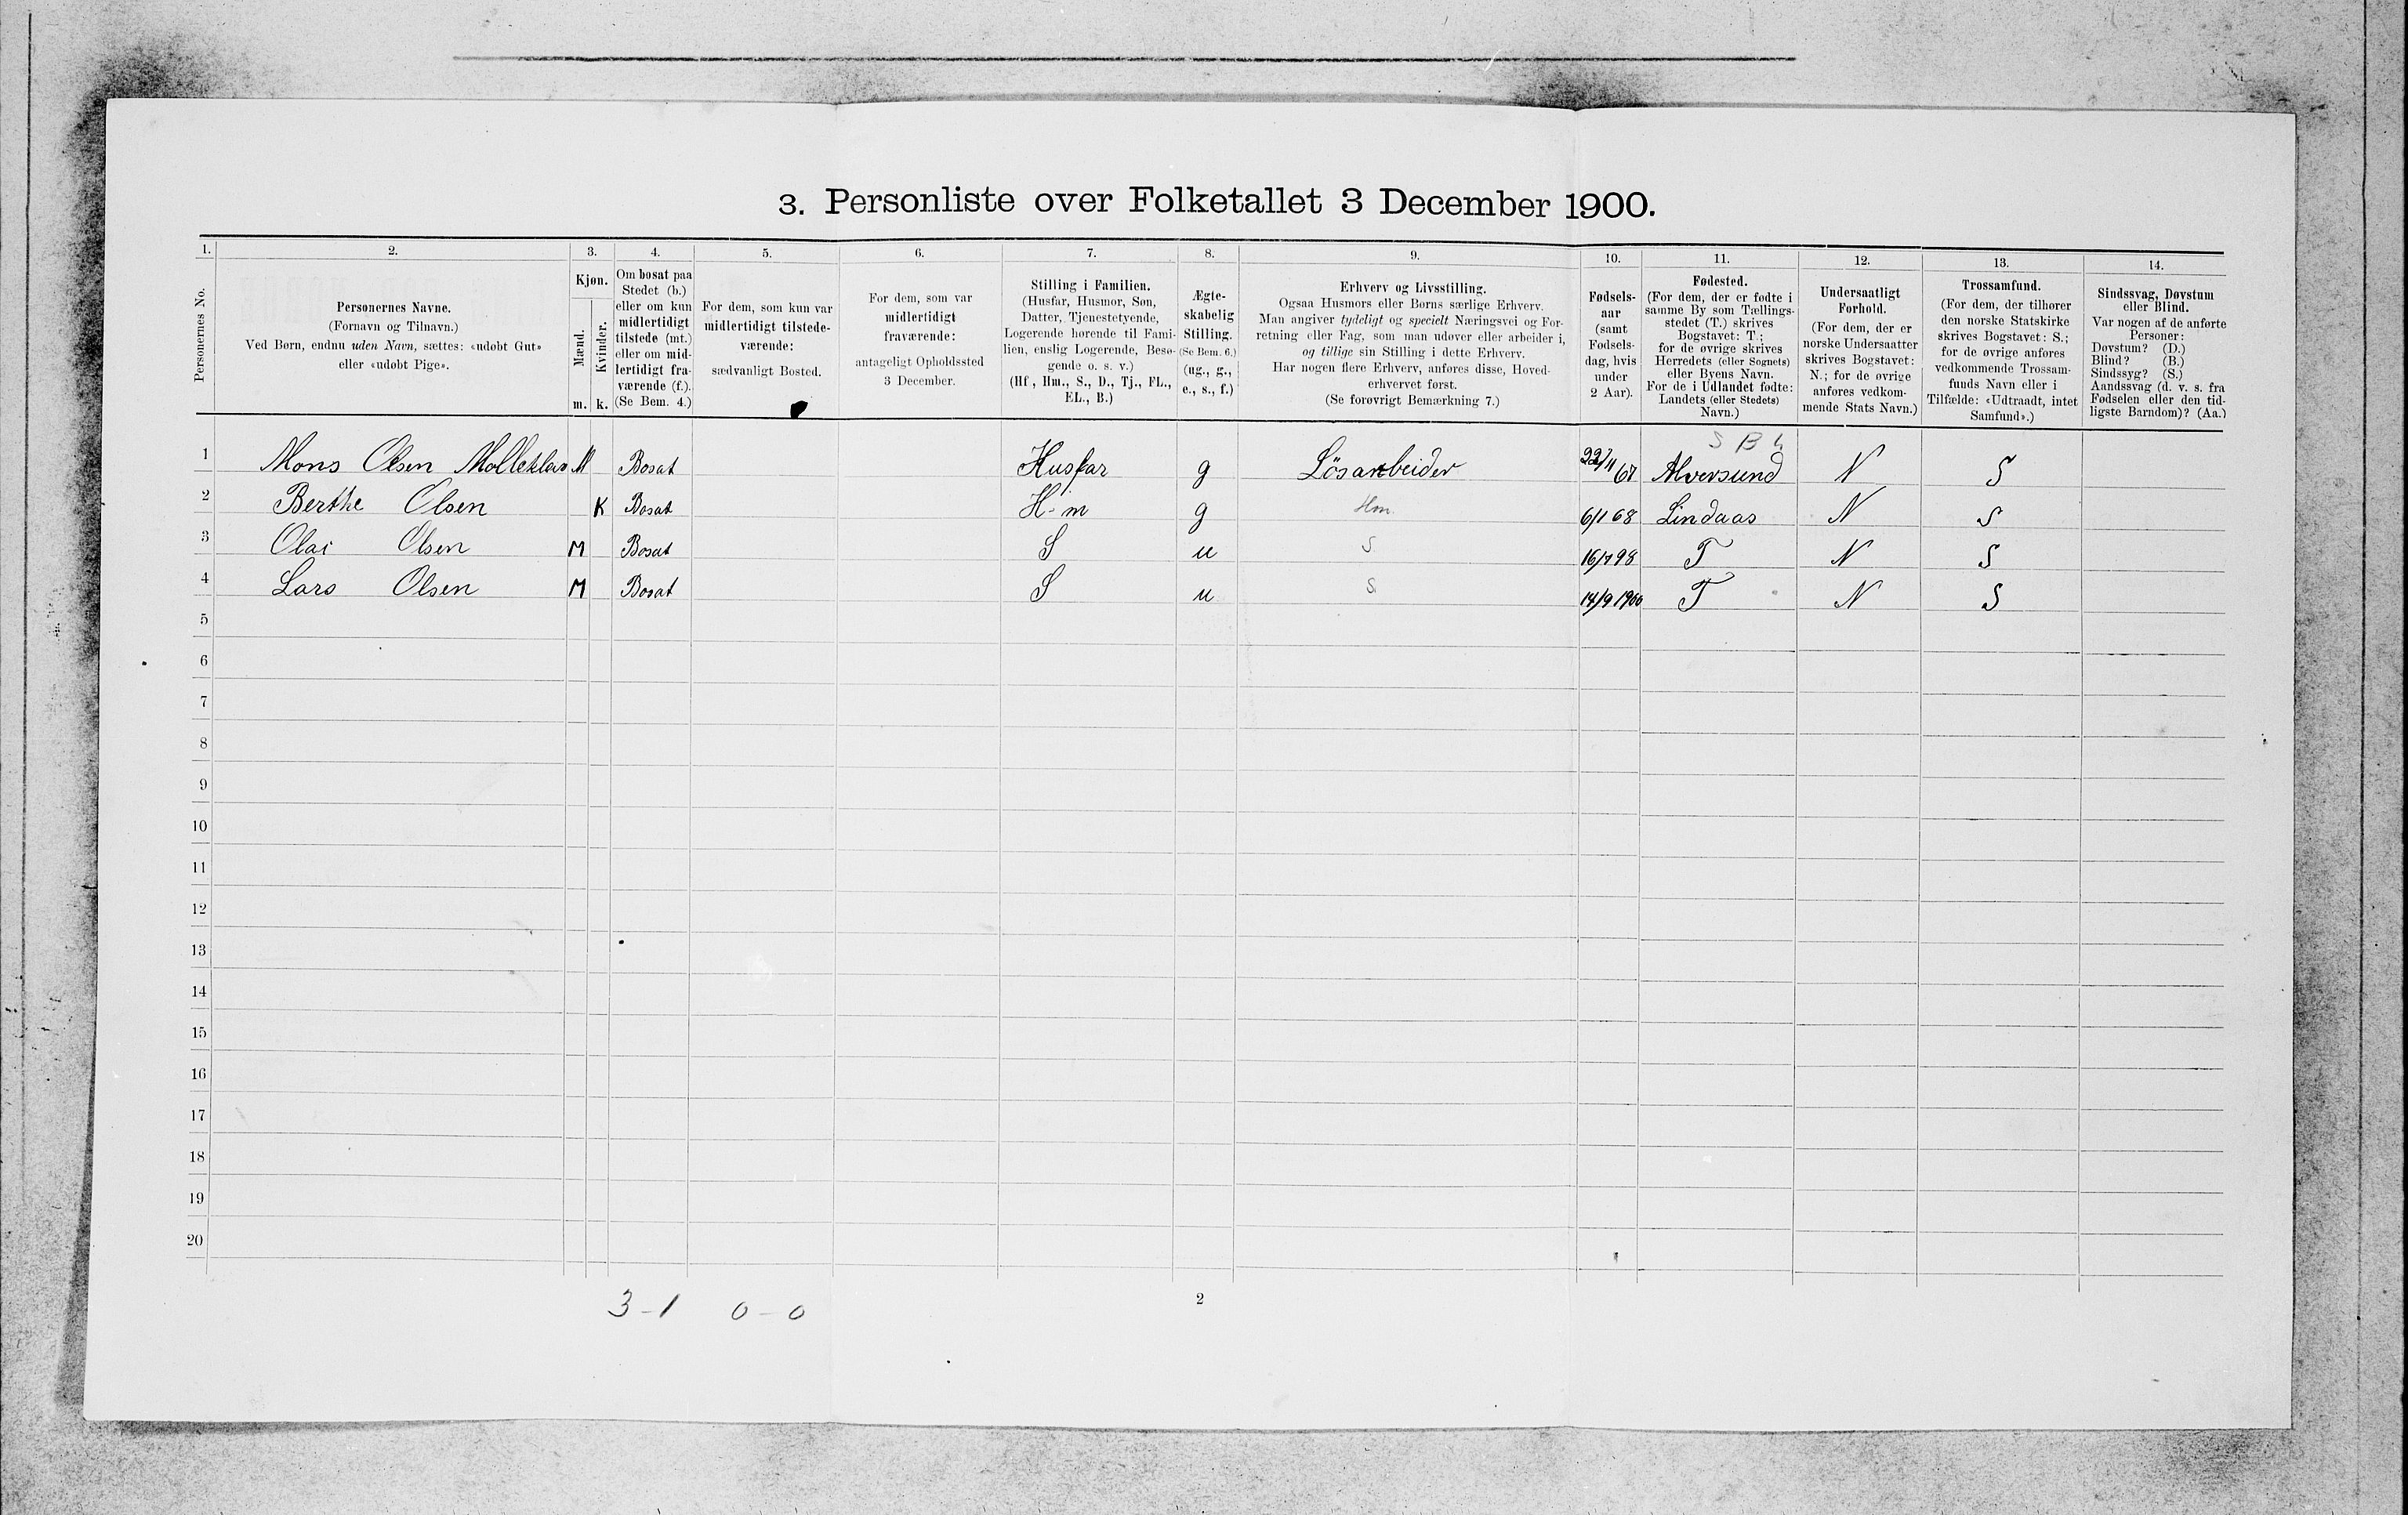 3. Personliste over Folketallet 3 December 1900.
1. 2. 3. 4. 5. 6. 7. 8. 9. 10. 11. 12. 13. 14.
Personernes No.
Personernes Navne.
(Fornavn og Tilnavn.)
Ved Børn, endnu uden Navn, sættes: «udøbt Gut»
eller «udøbt Pige».
Kjøn.
Mænd.
Kvinder.
m. k.
Om bosat paa
Stedet (b.)
eller om kun
midlertidigt
tilstede (mt.)
eller om mid-
lertidigt fra-
værende (f.).
(Se Bem. 4.)
For dem, som kun var
midlertidigt tilstede-
værende:
sædvanligt Bosted.
For dem, som var
midlertidigt
fraværende:
antageligt Opholdssted
3 December.
Stilling i Familien.
(Husfar, Husmor, Søn,
Datter, Tjenestetyende,
Logerende hørende til Fami-
lien, enslig Logerende, Besø-
gende o. s. v.)
(Hf, Hm., S., D., Tj., FL.,
EL., B.)
Ægte-
skabelig
Stilling.
(Se Bem. 6.)
(ug., g.,
e., s., f.)
Erhverv og Livsstilling.
Ogsaa Husmors eller Børns særlige Erhverv.
Man angiver tydeligt og specielt Næringsvei og For-
retning eller Fag, som man udøver eller arbeider i,
og tillige sin Stilling i dette Erhverv.
Har nogen flere Erhverv, anføres disse, Hoved-
erhvervet først.
(Se forøvrigt Bemærkning 7.)
Fødsels-
aar
(samt
Fødsels-
dag, hvis
under
2 Aar).
Fødested.
(For dem, der er fødte i
samme By som Tællings-
stedet (T.) skrives
Bogstavet: T.;
for de øvrige skrives
Herredets (eller Sognets)
eller Byens Navn.
For de i Udlandet fødte:
Landets (eller Stedets)
Navn.)
Undersaatligt
Forhold.
(For dem, der er
norske Undersaatter
skrives Bogstavet:
N.; for de øvrige
anføres vedkom-
mende Stats Navn.)
Trossamfund.
(For dem, der tilhører
den norske Statskirke
skrives Bogstavet: S.;
for de øvrige anføres
vedkommende Trossam-
funds Navn eller i
Tilfælde: «Udtraadt, intet
Samfund».)
Sindssvag, Døvstum
eller Blind.
Var nogen af de anførte
Personer:
Døvstum? (D.)
Blind? (B.)
Sindssyg? (S.)
Aandssvag (d. v. s. fra
Fødselen eller den tid-
ligste Barndom)? (Aa.)
S B
1 Mons Olsen M Bosat Husfar g Lösarbeider 22/11 67 Alversund N S
2 Berthe Olsen K Bosat H-m g Hm. 6/1 68 Lindaas N S
3 Olai Olsen M Bosat S u S. 16/7 98 T N S
4 Lars Olsen M Bosat S u S. 14/9 1900 T N S
5
6
7
8
9
10
11
12
13
14
15
16
17
18
19
20
3-1 0-0
2